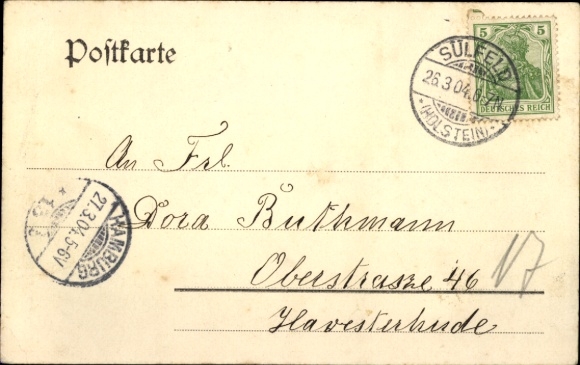 Postkarte
5 5
DEUTSCHES REICH
SÜLFELD
26.3.04.6-7N.
*(HOLSTEIN)*
An Frl.
Dora Buthmann
Oberstrasze 46
Havesterhude
17
HAMBURG
27.3.04.5-6V
* 13